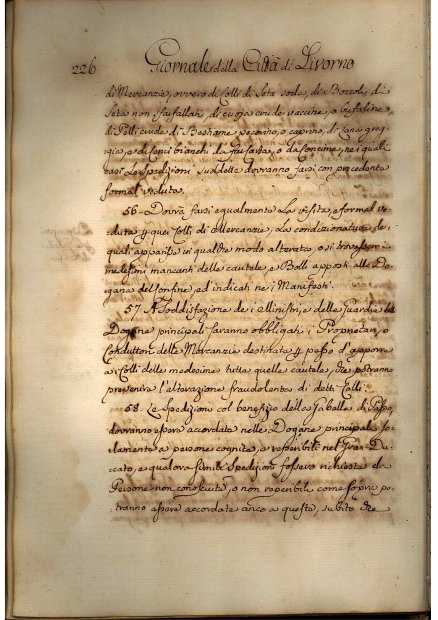 226 Giornale della Città di Livorno
di Mercanzie, ovvero di Colli di Seta soda, di Bozzoli di
Seta non sfarfallati, di cuoja crude vaccine, o bufaline,
di Pelli crude di Bestiame pecorino, o caprino, di Lana greg-
gia, e di Cenci bianchi da far Carta, o da Concime, ne i quali
casi le Spedizioni suddette dovranno farsi con precedente
formal veduta.
56. Dovrà farsi egualmente la visita, e formal ve-
duta a quei Colli di Mercanzie, la condizionatura de
quali apparisse in qualche modo alterata, o si trovassero i
medesimi mancanti delle cautele, e Bolli apposti alla Do-
gana del confine, ed indicati ne i Manifesti.
57. A Soddisfazione de i Ministri, e delle Guardie delle
Dogane principali saranno obbligati i Proprietarj, o
Conduttori delle Mercanzie destinate per passo d'apporre
a Colli delle medesime tutte quelle cautele, che potranno
prevenire l'alterazione fraudolenta di detti Colli.
58. Le Spedizioni col benefizio della Gabella di Passo,
dovranno essere accordate nelle Dogane principali so-
lamente a persone cognite, e responsabili nel Gran-Du-
cato, e qualora simili Spedizioni fossero richieste da
Persone non conosciute, o non reperibili come sopra po-
tranno essere accordate anco a queste, subito che